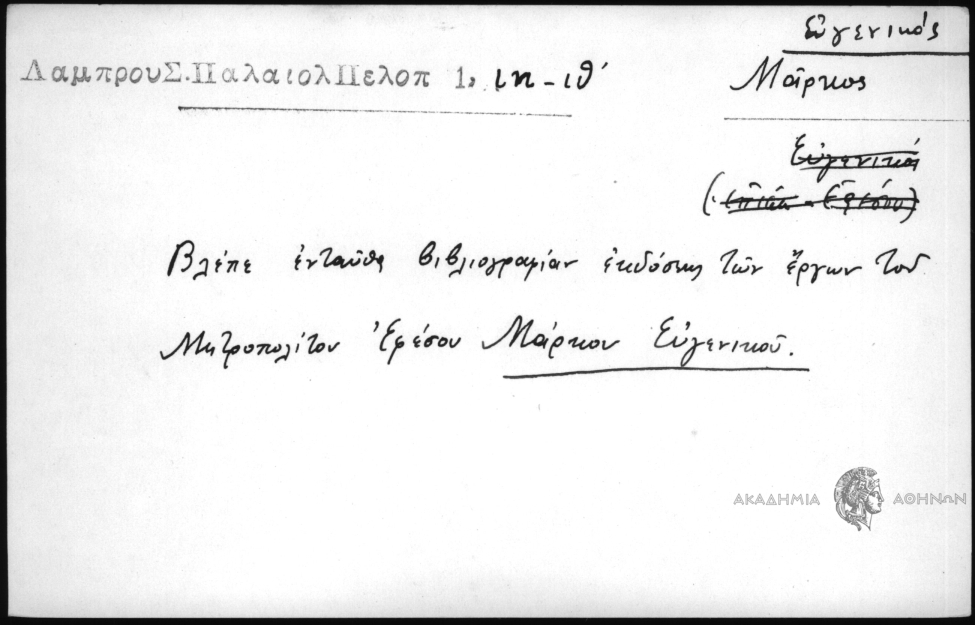 Εὐγενικός
ΛαμπρουΣ.ΠαλαιολΠελοπ 1, ιη - ιθ´
Μᾶρκος
Εὐγενικός
Βλέπε ἐνταῦθα βιβλιογραφίαν ἐκδόσεως τῶν ἔργων τοῦ
Μητροπολίτου Ἐφέσου Μάρκου Εὐγενικοῦ.
ΑΚΑΔΗΜΙΑ ΑΘΗΝΩΝ